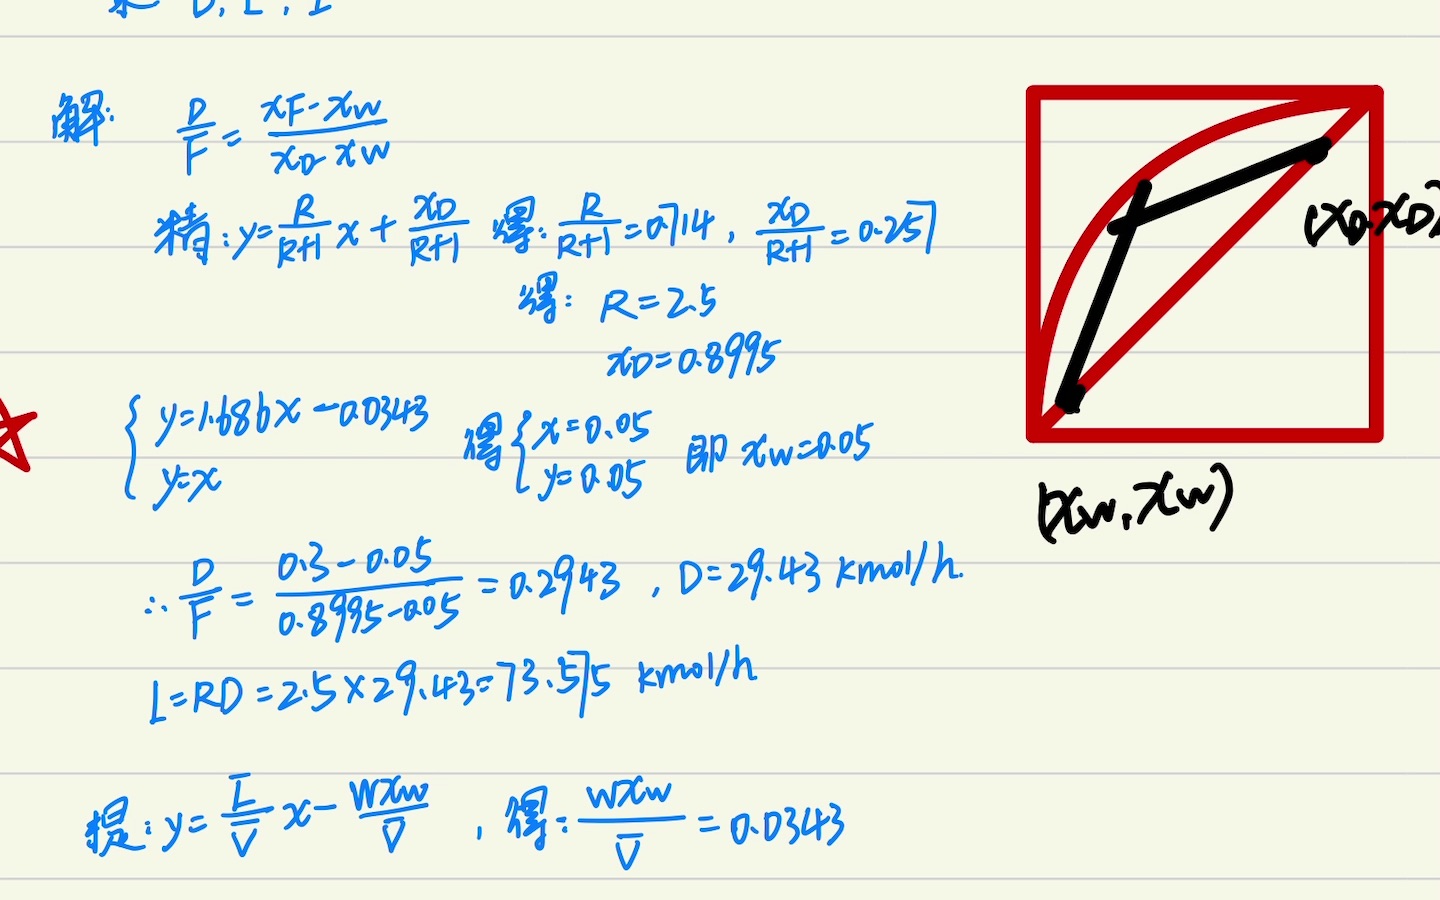 解: D/F = (xF-xW)/(xD-xW)
精: y = R/(R+1) x + xD/(R+1) 得: R/(R+1) = 0.714, xD/(R+1) = 0.257
得: R=2.5
xD=0.8995
{ y=1.686x-0.0343
y=x
得 { x=0.05
y=0.05
即 xW=0.05
∴ D/F = (0.3-0.05)/(0.8995-0.05) = 0.2943, D=29.43 kmol/h.
L=RD=2.5×29.43=73.575 kmol/h
提: y = L̄/V̄ x - WxW/V̄, 得: WxW/V̄ = 0.0343
(xD,xD)
(xW,xW)